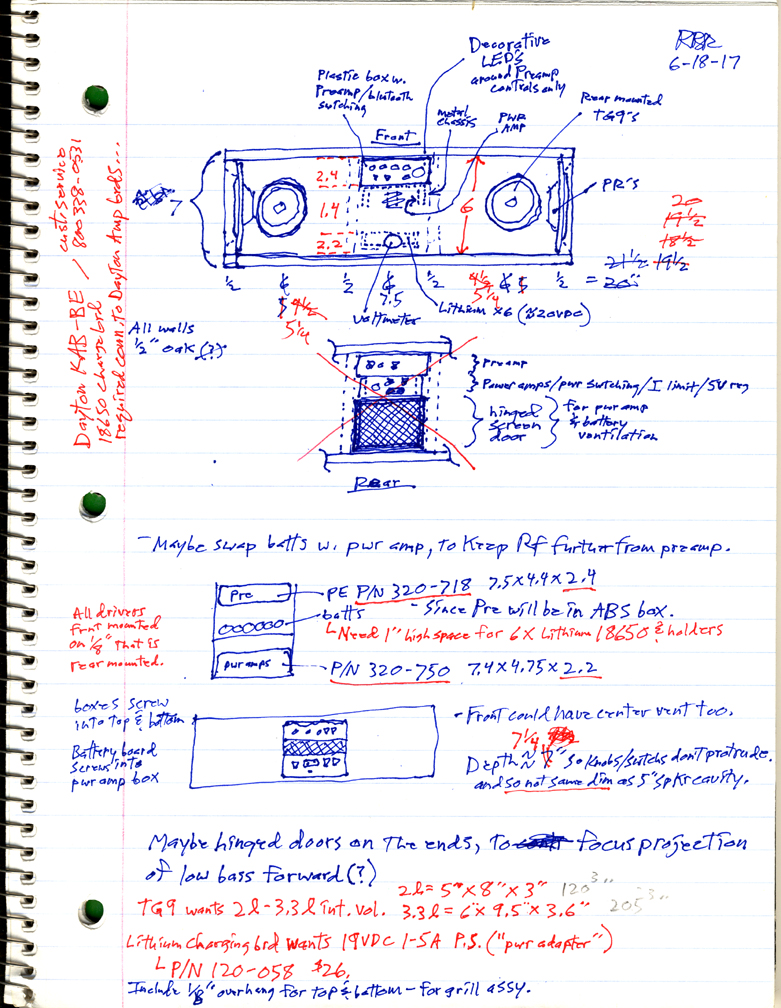 RBR
6-18-17
Decorative
LED's
around Preamp
controls only
Plastic box w.
Preamp/blutooth
switching
metal
chassis
PWR
AMP
Rear mounted
TG9's
Front
PR's
2.4
1.4
2.2
6
7
20
19½
18½
21½ 19½
= 20"
½ ¢ ½ ¢ ½ 4½ ¢ 5 ½
5 4½
5¼
7.5
5¼
Voltmeter
Lithium x6 (≈20VDC)
Dayton KAB-BE / cust. service
18650 charge brd 800 338-0531
required conn. to Dayton Amp brds...
All walls
½" oak (?)
Preamp
Power amps/pwr switching/I limit/5V reg
hinged
screen
door
for pwr amp
& battery
ventilation
Rear
- Maybe swap batts w. pwr amp, to keep Rf further from preamp.
Pre
PE P/N 320-718 7.5 x 4.4 x 2.4
batts - Since Pre will be in ABS box.
Need 1" high space for 6x Lithium 18650 & holders
pwr amps
P/N 320-750 7.4 x 4.75 x 2.2
All drivers
front mounted
on ⅛" that is
rear mounted.
boxes screw
into top & bottom
Battery board
screws into
pwr amp box
- Front could have center vent too.
7¼
Depth ≈ " so knobs/switchs don't protrude.
and so not same dim as 5" spkr cavity.
Maybe hinged doors on the ends, to focus projection
of low bass forward (?)
2l = 5" x 8" x 3" 120³"
TG9 wants 2l - 3.3l int. vol. 3.3l = 6" x 9.5" x 3.6" 205³"
Lithium charging brd wants 19VDC 1-5A P.S. ("pwr adapter")
P/N 120-058 $26.
Include ⅛" overhang for top & bottom - for grill assy.